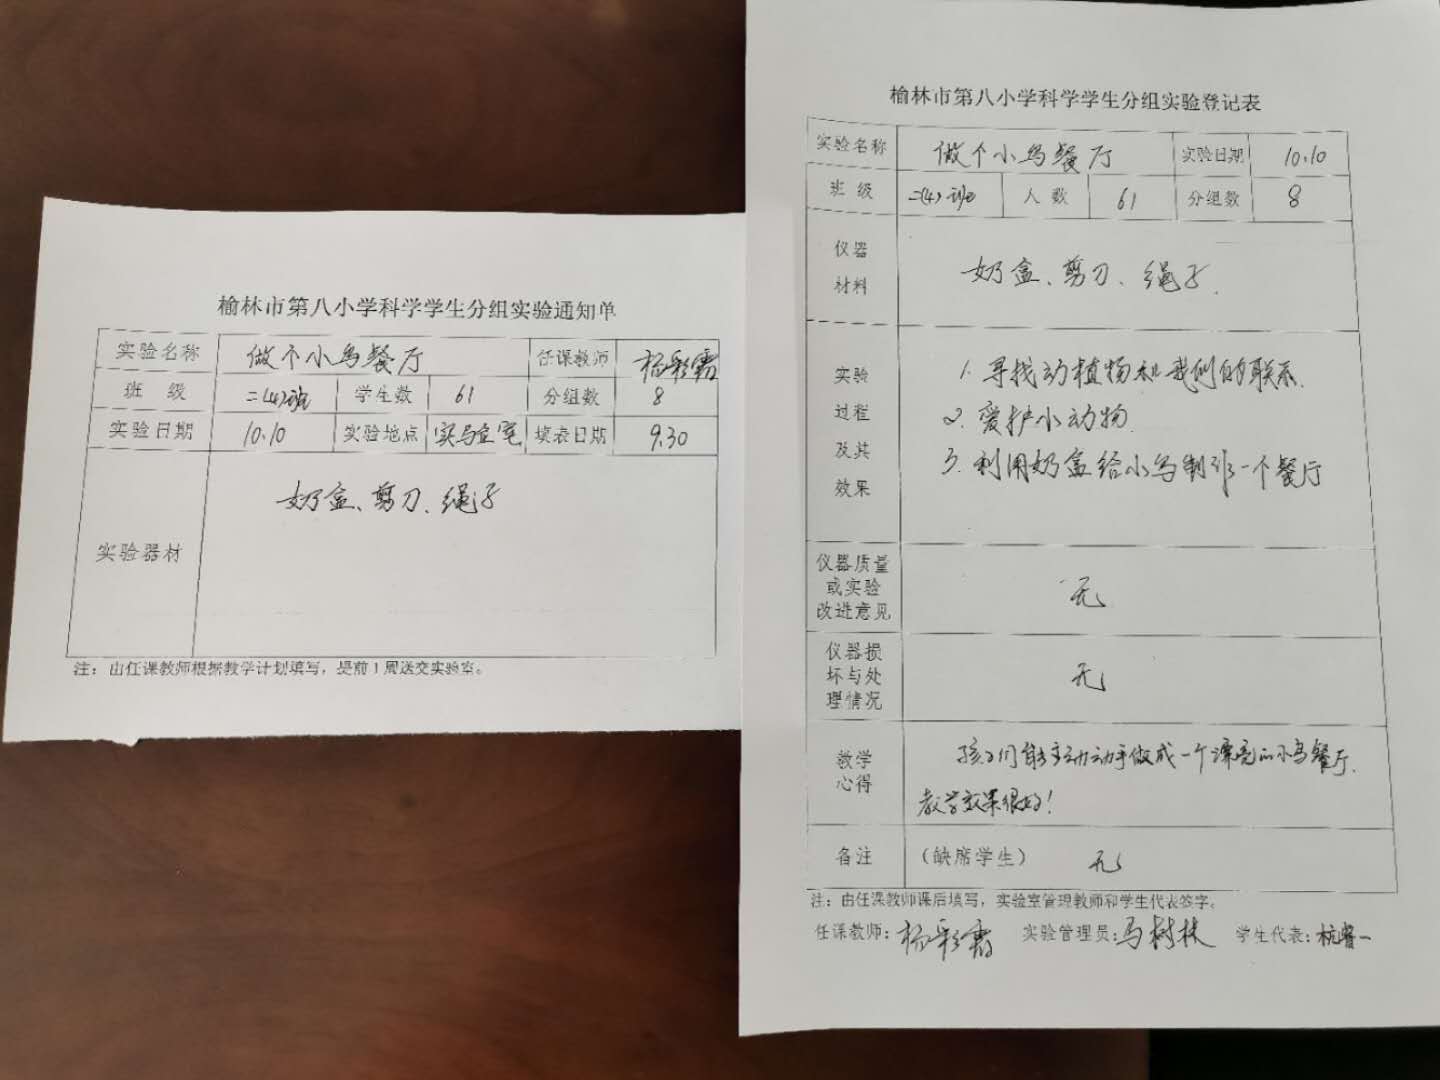 榆林市第八小学科学学生分组实验通知单
实验名称 做个小鸟餐厅 任课教师 杨彩霞
班 级 二(4)班 学生数 61 分组数 8
实验日期 10.10 实验地点 实验室 填表日期 9.30
实验器材 奶盒、剪刀、绳子
注：由任课教师根据教学计划填写，提前1周送交实验室。
榆林市第八小学科学学生分组实验登记表
实验名称 做个小鸟餐厅 实验日期 10.10
班 级 二(4)班 人 数 61 分组数 8
仪器
材料
奶盒、剪刀、绳子.
实验
过程
及其
效果
1. 寻找动植物和我们的联系.
2. 爱护小动物.
3. 利用奶盒给小鸟制作一个餐厅
仪器质量
或实验
改进意见
无
仪器损
坏与处
理情况
无
教学
心得
孩子们能主动动手做成一个漂亮的小鸟餐厅.
教学效果很好！
备注 （缺席学生） 无
注：由任课教师课后填写，实验室管理教师和学生代表签字。
任课教师：杨彩霞 实验管理员：马树林 学生代表：杭睿一